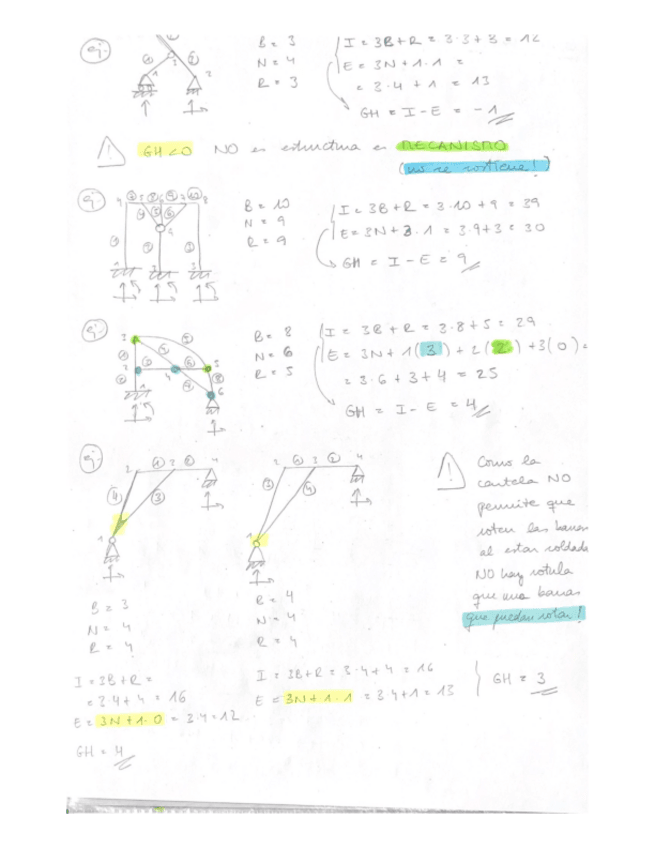 ej:
B = 3
N = 4
R = 3
I = 3B + R = 3·3 + 3 = 12
E = 3N + 1·1 =
= 3·4 + 1 = 13
GH = I - E = -1
GH<0 NO es estructura es MECANISMO
(no se sostiene!)
ej:
B = 10
N = 9
R = 9
I = 3B + R = 3·10 + 9 = 39
E = 3N + 3·1 = 3·9 + 3 = 30
GH = I - E = 9
ej:
B = 8
N = 6
R = 5
I = 3B + R = 3·8 + 5 = 29
E = 3N + 1(3) + 2(2) + 3(0) =
= 3·6 + 3 + 4 = 25
GH = I - E = 4
ej:
Como la
cartela NO
permite que
roten las barras
al estar soldada
NO hay rótula
que una barras
que puedan rotar!
B = 3
N = 4
R = 4
B = 4
N = 4
R = 4
I = 3B + R =
= 3·4 + 4 = 16
E = 3N + 1·0 = 3·4 = 12
GH = 4
I = 3B + R = 3·4 + 4 = 16
E = 3N + 1·1 = 3·4 + 1 = 13
GH = 3